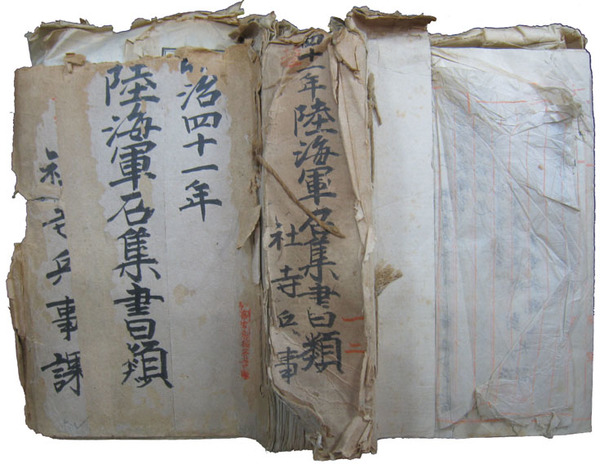 四十一年陸海軍召集書類
社寺兵事
一二
治四十一年
陸海軍召集書類
兵事課